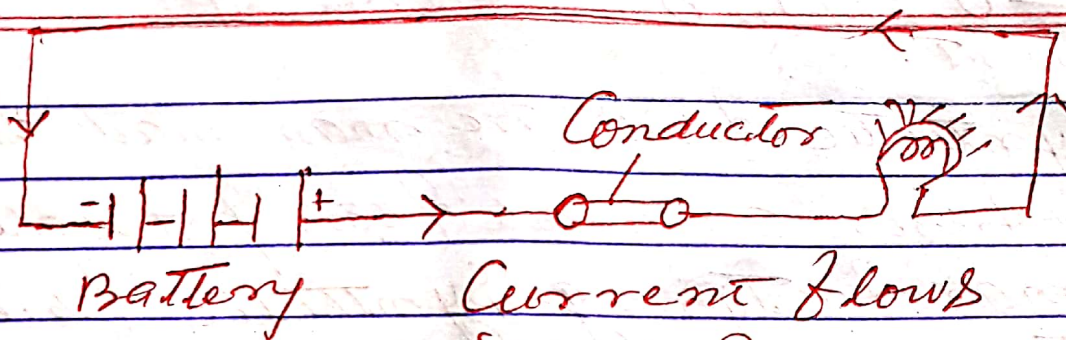 Conductor
- +
Battery Current flows